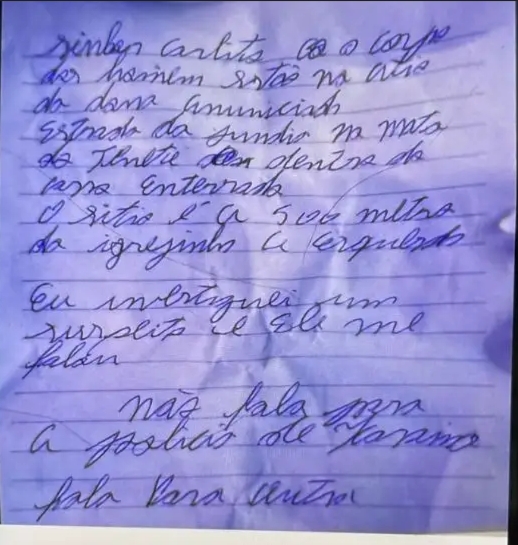 carlito o corpo
dos homem estão na
da dona anunciada
Estrada da fundio na mata
do Tenete dentra da
carro Enterrada
O sitio é a 500 metro
da igrejinha a Esquerda
Eu investiguei um
surpeito e Ele me
falou
não fala para
a policia de
fala Para outra